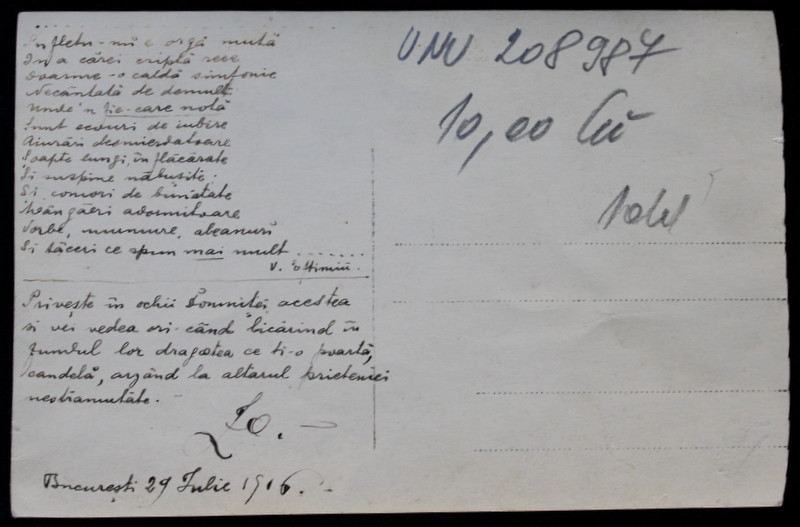 Sufletu-mi e orgă mută
În a cărei criptă rece
Doarme-o caldă simfonie
Necântată de demult
Unde'n fie-care notă
Sunt ecouri de iubire
Aiurări desmierdatoare
Soapte lungi, în flăcărate
Si suspine năbusite;
Si comori de bunătate
Mângâeri adormitoare
Vorbe, murmure, aleanuri
Si tăceri ce spun mai mult ......
V. Eftimiu.
Priveşte în ochii Domnitei acestea
si vei vedea ori-când licărind în
fundul lor dragostea ce ti-o poartă,
candelă, arzând la altarul prieteniei
nestrămutate.
Bucureşti 29 Iulie 1916.
208987
10,00